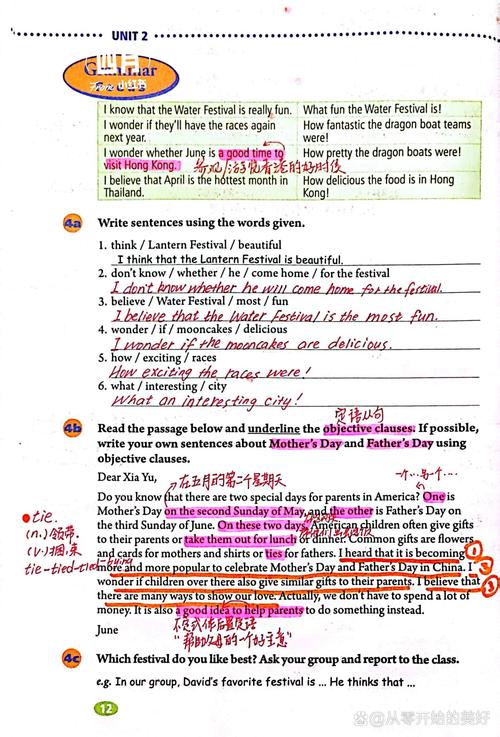 UNIT 2
四月
Grammar
From 小红书
I know that the Water Festival is really fun.
What fun the Water Festival is!
I wonder if they'll have the races again next year.
How fantastic the dragon boat teams were!
I wonder whether June is a good time to visit Hong Kong.
参观/游览香港的好时候
How pretty the dragon boats were!
I believe that April is the hottest month in Thailand.
How delicious the food is in Hong Kong!
4a Write sentences using the words given.
1. think / Lantern Festival / beautiful
I think that the Lantern Festival is beautiful.
2. don't know / whether / he / come home / for the festival
I don't know whether he will come home for the festival.
3. believe / Water Festival / most / fun
I believe that the Water Festival is the most fun.
4. wonder / if / mooncakes / delicious
I wonder if the mooncakes are delicious.
5. how / exciting / races
How exciting the races were!
6. what / interesting / city
What an interesting city!
宾语从句
4b Read the passage below and underline the objective clauses. If possible,
write your own sentences about Mother's Day and Father's Day using
objective clauses.
Dear Xia Yu,
在五月的第二个星期天
一个…另一个…
Do you know that there are two special days for parents in America? One is
Mother's Day on the second Sunday of May, and the other is Father's Day on
the third Sunday of June. On these two days, American children often give gifts
to their parents or take them out for lunch or dinner. Common gifts are flowers
and cards for mothers and shirts or ties for fathers. I heard that it is becoming ①
more and more popular to celebrate Mother's Day and Father's Day in China. I ②
wonder if children over there also give similar gifts to their parents. I believe that ③
there are many ways to show our love. Actually, we don't have to spend a lot of
money. It is also a good idea to help parents to do something instead.
tie.
(n.) 领带.
(v.) 捆,束
tie-tied-tied-tying
June
不定式作后置定语
"帮助父母的一个好主意"
4c Which festival do you like best? Ask your group and report to the class.
e.g. In our group, David's favorite festival is ... He thinks that ...
12
@从零开始的美好